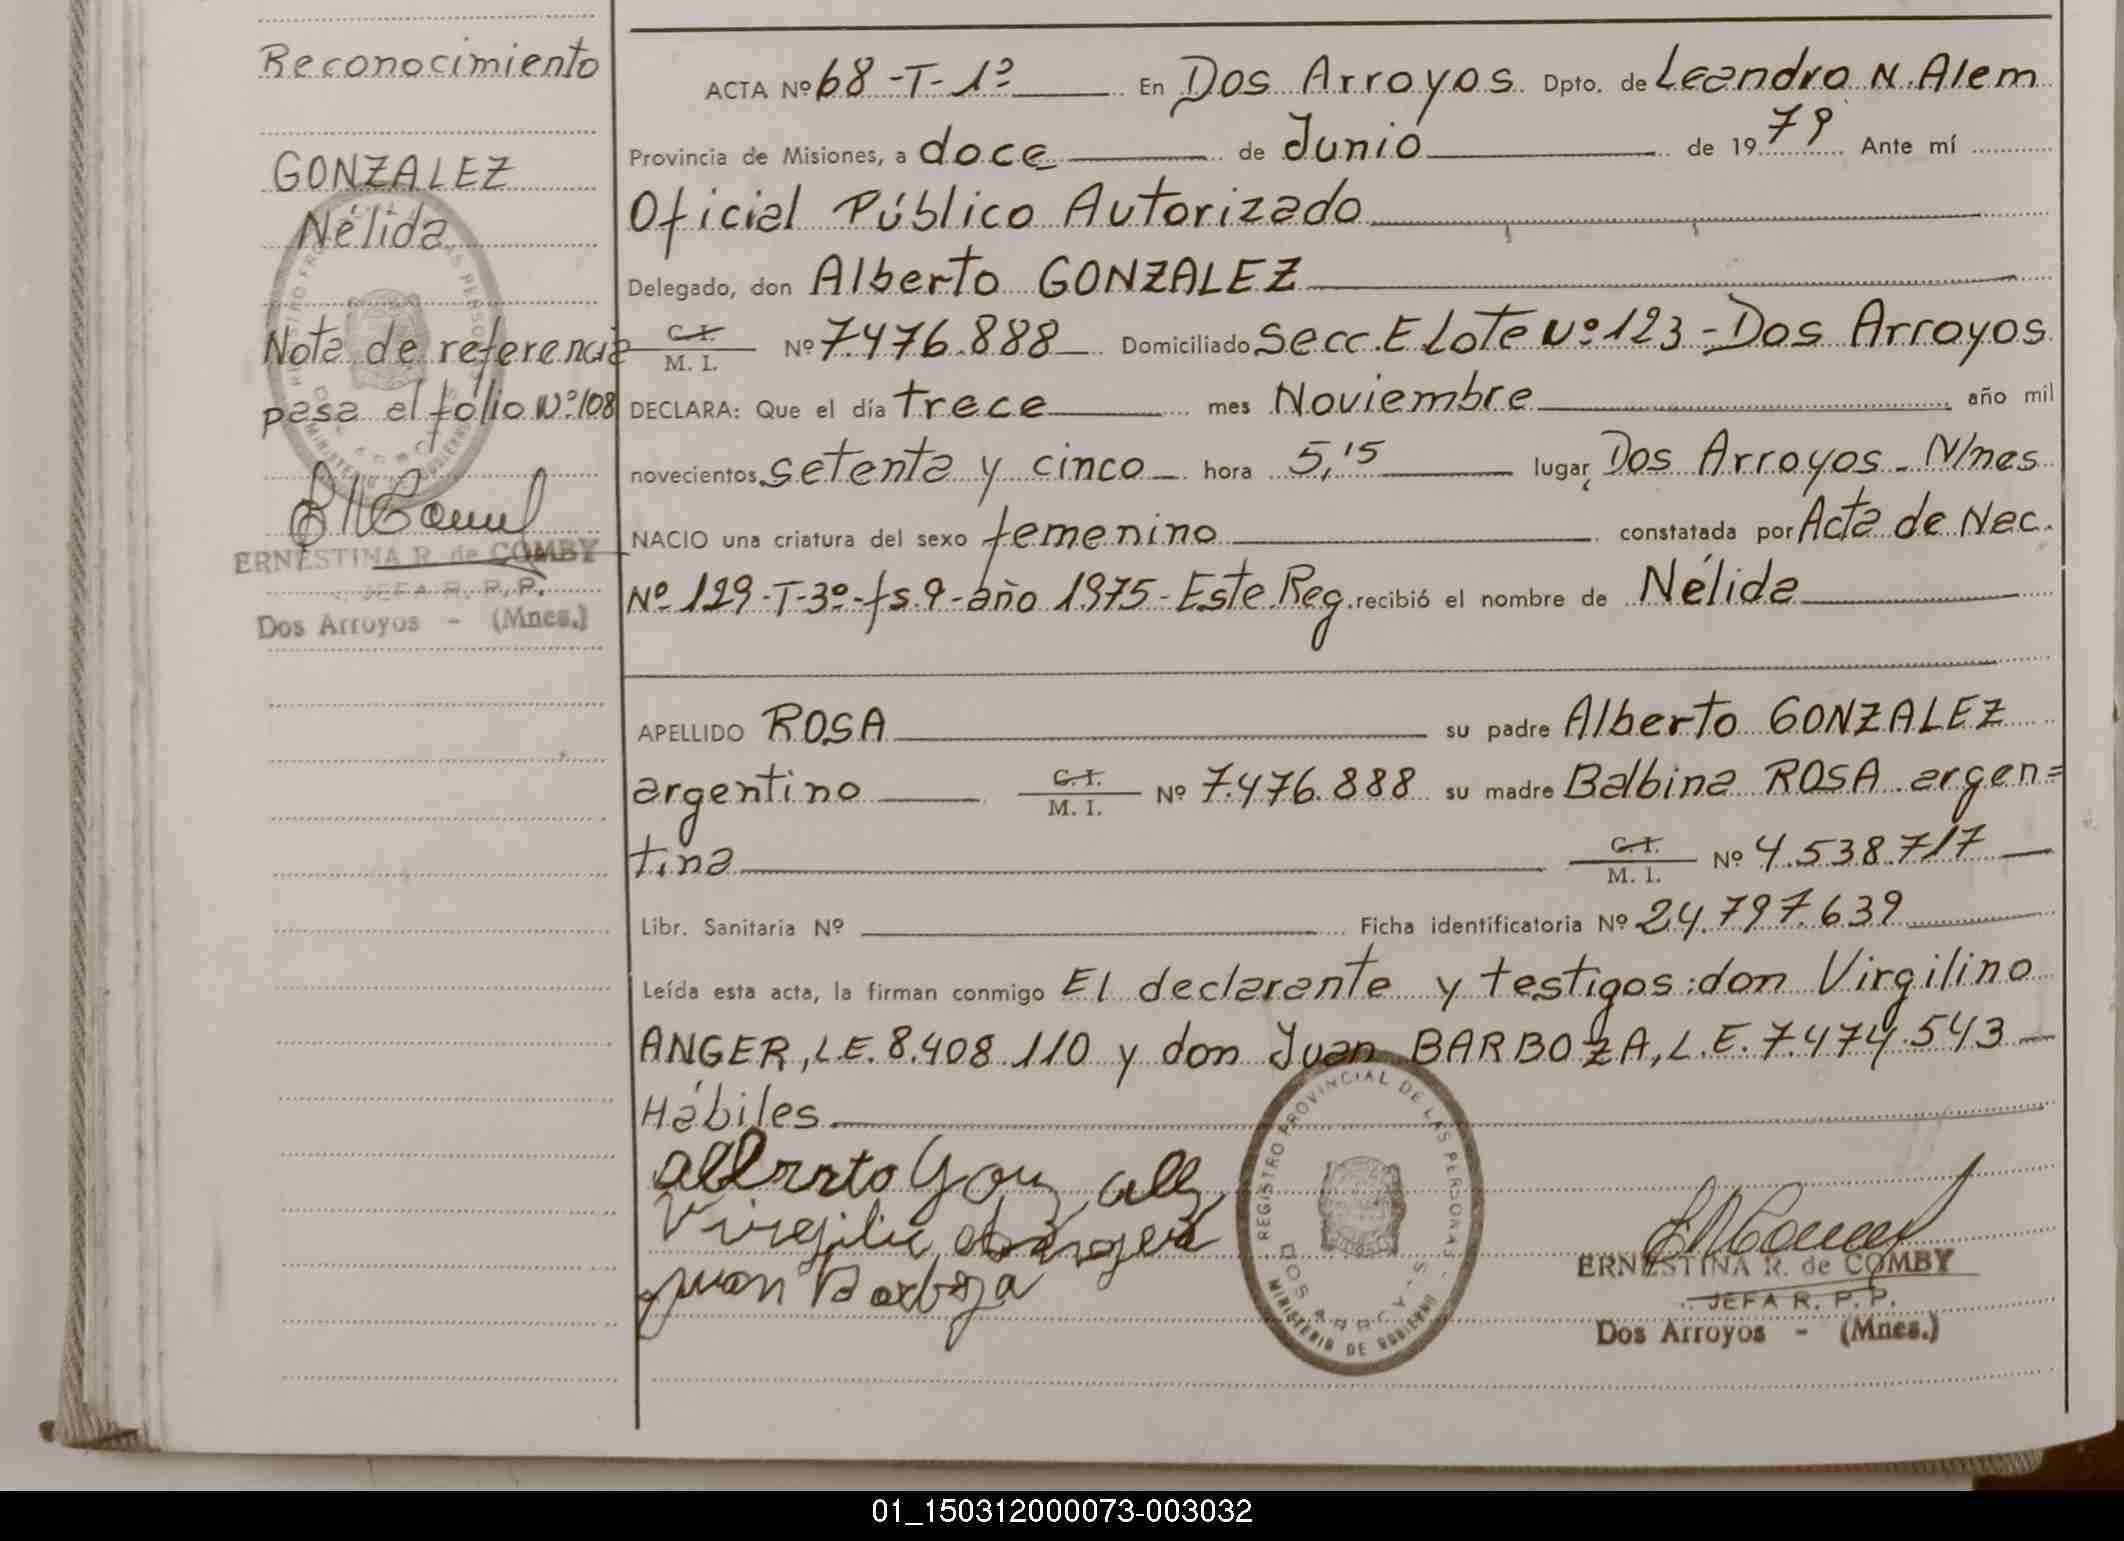 Reconocimiento
GONZALEZ
Nélida
Nota de referencia
pasa el folio Nº 108
ERNESTINA R. de COMBY
JEFA R. P. P.
Dos Arroyos - (Mnes.)
ACTA Nº 68-T-1º En Dos Arroyos Dpto. de Leandro N. Alem
Provincia de Misiones, a doce de Junio de 1979 Ante mí
Oficial Público Autorizado
Delegado, don Alberto GONZALEZ
C. I. M. I. Nº 7.476.888 Domiciliado Secc. E Lote Nº 123 - Dos Arroyos
DECLARA: Que el día trece mes Noviembre año mil
novecientos setenta y cinco hora 5,15 lugar Dos Arroyos - M/nes
NACIO una criatura del sexo femenino constatada por Acta de Nac.
Nº 129-T-3º-fs.9-año 1975-Este Reg. recibió el nombre de Nélida
APELLIDO ROSA su padre Alberto GONZALEZ
argentino C. I. M. I. Nº 7.476.888 su madre Balbina ROSA argen=
tina C. I. M. I. Nº 4.538.717
Libr. Sanitaria Nº Ficha identificatoria Nº 24.797.639
Leída esta acta, la firman conmigo El declarante y testigos: don Virgilino
ANGER, L.E. 8.408.110 y don Juan BARBOZA, L.E. 7.474.543
Hábiles
Alberto Gonzalez
Juan Barboza
REGISTRO PROVINCIAL DE LAS PERSONAS
DOS ARROYOS
MINISTERIO DE GOBIERNO
ERNESTINA R. de COMBY
JEFA R. P. P.
Dos Arroyos - (Mnes.)
01_150312000073-003032